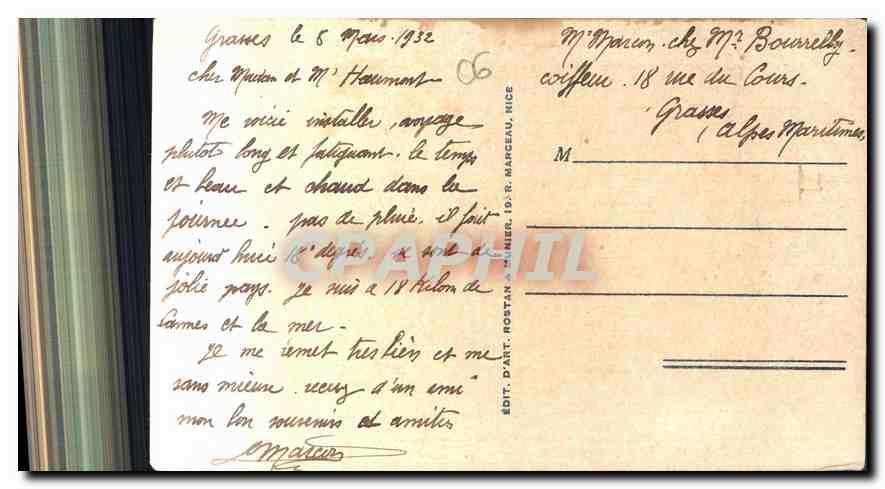 Grasses le 8 Mars. 1932
cher Madan et Mr Haumont
06
Me voicie installer, voyage
plutot long et fatiguant. le temps
et beau et chaud dans la
journee. pas de pluie. il fait
aujourd huie 18° degres. se sont de
jolie pays. Je suis a 18 Kilom de
Cannes et la mer.
Je me remet tres bien et me
sans mieux. recevez d'un ami
mon bon souvenirs et amities
Marcon
Mr Marcon. chez Mr. Bourrelly.
coiffeur. 18 rue du Cours.
Grasses
Alpes Maritimes
M
EDIT. D'ART. ROSTAN & MUNIER, 19, R. MARCEAU, NICE
CPAPHIL